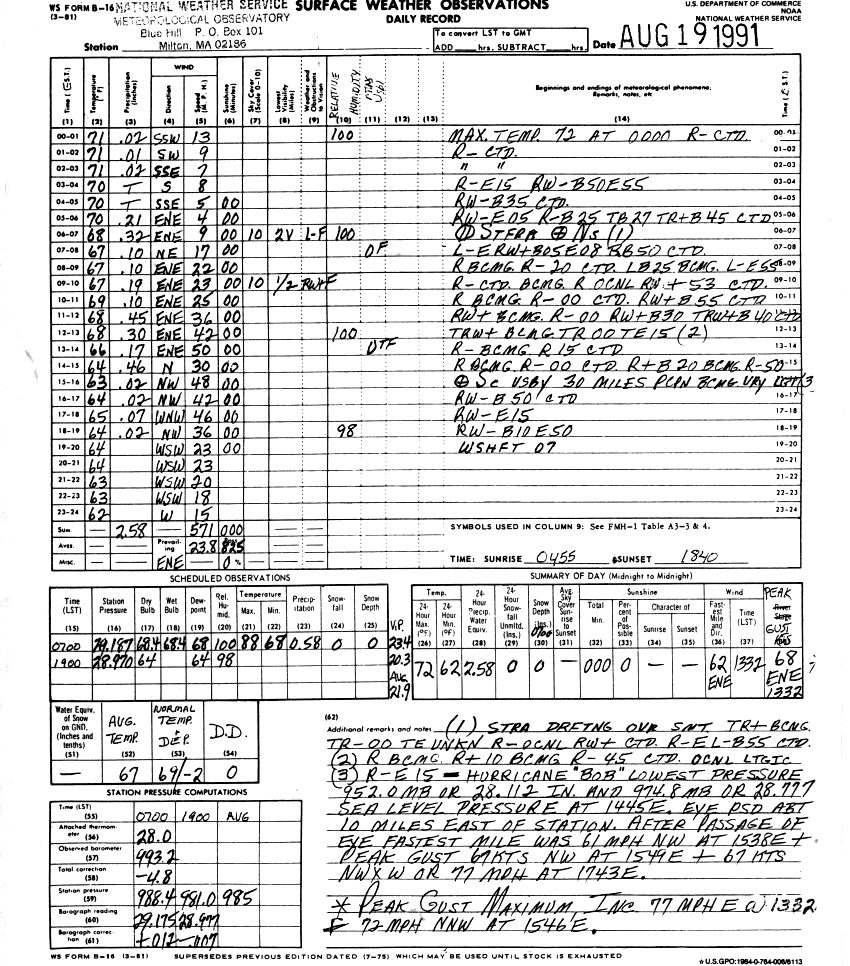 WS FORM B-16 NATIONAL WEATHER SERVICE SURFACE WEATHER OBSERVATIONS U.S. DEPARTMENT OF COMMERCE
(3-81) METEOROLOGICAL OBSERVATORY DAILY RECORD NOAA
Blue Hill P. O. Box 101 NATIONAL WEATHER SERVICE
Station Milton, MA 02186 To convert LST to GMT ADD hrs. SUBTRACT hrs. Date AUG 19 1991
WIND
Time (E.S.T.) Temperature °F Precipitation (Inches) Direction Speed (M. P. H.) Sunshine (Minutes) Sky Cover (Scale 0-10) Lowest Visibility (Miles) Weather and Obstructions to Vision RELATIVE HUMIDITY Beginnings and endings of meteorological phenomena; Remarks, notes, etc Time (E.S.T.)
(1) (2) (3) (4) (5) (6) (7) (8) (9) (10) (11) (12) (13) (14)
00-01 71 .02 SSW 13 100 MAX. TEMP. 72 AT 0000 R- CTD. 00-01
01-02 71 .01 SW 9 R- CTD. 01-02
02-03 71 .02 SSE 7 " " 02-03
03-04 70 T S 8 R-E15 RW-B50E55 03-04
04-05 70 T SSE 5 00 RW-B35 CTD. 04-05
05-06 70 .21 ENE 4 00 RW-E05 R-B25 TB27 TR+B45 CTD 05-06
06-07 68 .32 ENE 9 00 10 2V L-F 100 STFRA ⊕ NS (1) 06-07
07-08 67 .10 NE 17 00 OF L-E RW+B05E08 RB50 CTD. 07-08
08-09 67 .10 ENE 22 00 R BCMG. R-20 CTD. LB25 BCMG. L-E55 08-09
09-10 67 .19 ENE 23 00 10 1/2 RW+F R-CTD. BCMG. R OCNL RW+ 53 CTD. 09-10
10-11 69 .10 ENE 25 00 R BCMG. R-00 CTD. RW+B55 CTD 10-11
11-12 68 .45 ENE 36 00 RW+ BCMG. R-00 RW+B30 TRW+B40 CTD 11-12
12-13 68 .30 ENE 42 00 100 TRW+ BCMG. TR00TE15 (2) 12-13
13-14 66 .17 ENE 50 00 R-BCMG R15 CTD 13-14
14-15 64 .46 N 30 00 R BCMG. R-00 CTD. R+B20 BCMG. R-50 14-15
15-16 63 .02 NW 48 00 ⊕ Sc VSBY 30 MILES PCPN BCMG VRY LGT (3 15-16
16-17 64 .02 NW 42 00 RW-B50 CTD 16-17
17-18 65 .07 WNW 46 00 RW-E15 17-18
18-19 64 .02 NW 36 00 98 RW-B10E50 18-19
19-20 64 WSW 23 00 WSHFT 07 19-20
20-21 64 WSW 23 20-21
21-22 63 WSW 20 21-22
22-23 63 WSW 18 22-23
23-24 62 W 15 23-24
Sum. — 2.58 — 571 000 — — — SYMBOLS USED IN COLUMN 9: See FMH-1 Table A3-3 & 4.
Aver. — — Prevailing 23.8 825
Misc. — — ENE — 0% — — — TIME: SUNRISE 0455 SUNSET 1840
SCHEDULED OBSERVATIONS
SUMMARY OF DAY (Midnight to Midnight)
Time (LST) Station Pressure Dry Bulb Wet Bulb Dewpoint Rel. Humid. Temperature Max. Min. Precipitation Snowfall Snow Depth V.P.
(15) (16) (17) (18) (19) (20) (21) (22) (23) (24) (25)
0700 29.187 68.4 68.4 68 100 88 68 0.58 0 0 23.4
1900 28.970 64 64 98 20.3
AUG 21.9
Temp. 24-Hour Max. (°F) 24-Hour Min. (°F) 24-Hour Precip. Water Equiv. 24-Hour Snowfall Unmltd. (Ins.) Snow Depth (Ins.) 0700 Avg. Sky Cover Sunrise to Sunset Sunshine Total Min. Percent of Possible Character of Sunrise Sunset Wind Fastest Mile and Dir. Time (LST) PEAK GUST
(26) (27) (28) (29) (30) (31) (32) (33) (34) (35) (36) (37)
72 62 2.58 0 0 — 000 0 — — 62 ENE 1332 68 ENE 1332
Water Equiv. of Snow on GND. (Inches and tenths) (51) AVG. TEMP. (52) NORMAL TEMP. + DEP. (53) D.D. (54)
— 67 69/-2 0
STATION PRESSURE COMPUTATIONS
Time (LST) (55) 0700 1900 AUG
Attached thermometer (56) 28.0
Observed barometer (57) 993.2
Total correction (58) -4.8
Station pressure (59) 988.4 981.0 985
Barograph reading (60) 29.175 28.977
Barograph correction (61) +.012 -.007
(62)
Additional remarks and notes (1) STRA DRFTNG OVR SMT TR+BCMG.
TR-00 TE UNKN R-OCNL RW+ CTD. R-EL-B55 CTD.
(2) R BCMG. R+10 BCMG R-45 CTD. OCNL LTGIC
(3) R-E15 — HURRICANE "BOB" LOWEST PRESSURE
952.0 MB OR 28.112 IN. AND 974.8 MB OR 28.777
SEA LEVEL PRESSURE AT 1445E. EYE PSD ABT
10 MILES EAST OF STATION. AFTER PASSAGE OF
EYE FASTEST MILE WAS 61 MPH NW AT 1538E +
PEAK GUST 67KTS NW AT 1549E + 67 KTS
NWXW OR 77 MPH AT 1743E.
* PEAK GUST MAXIMUM, INC 77 MPH E @ 1332
72 MPH NNW AT 1546E.
WS FORM B-16 (3-81) SUPERSEDES PREVIOUS EDITION DATED (7-75) WHICH MAY BE USED UNTIL STOCK IS EXHAUSTED ☆U.S.GPO:1984-0-764-006/6113